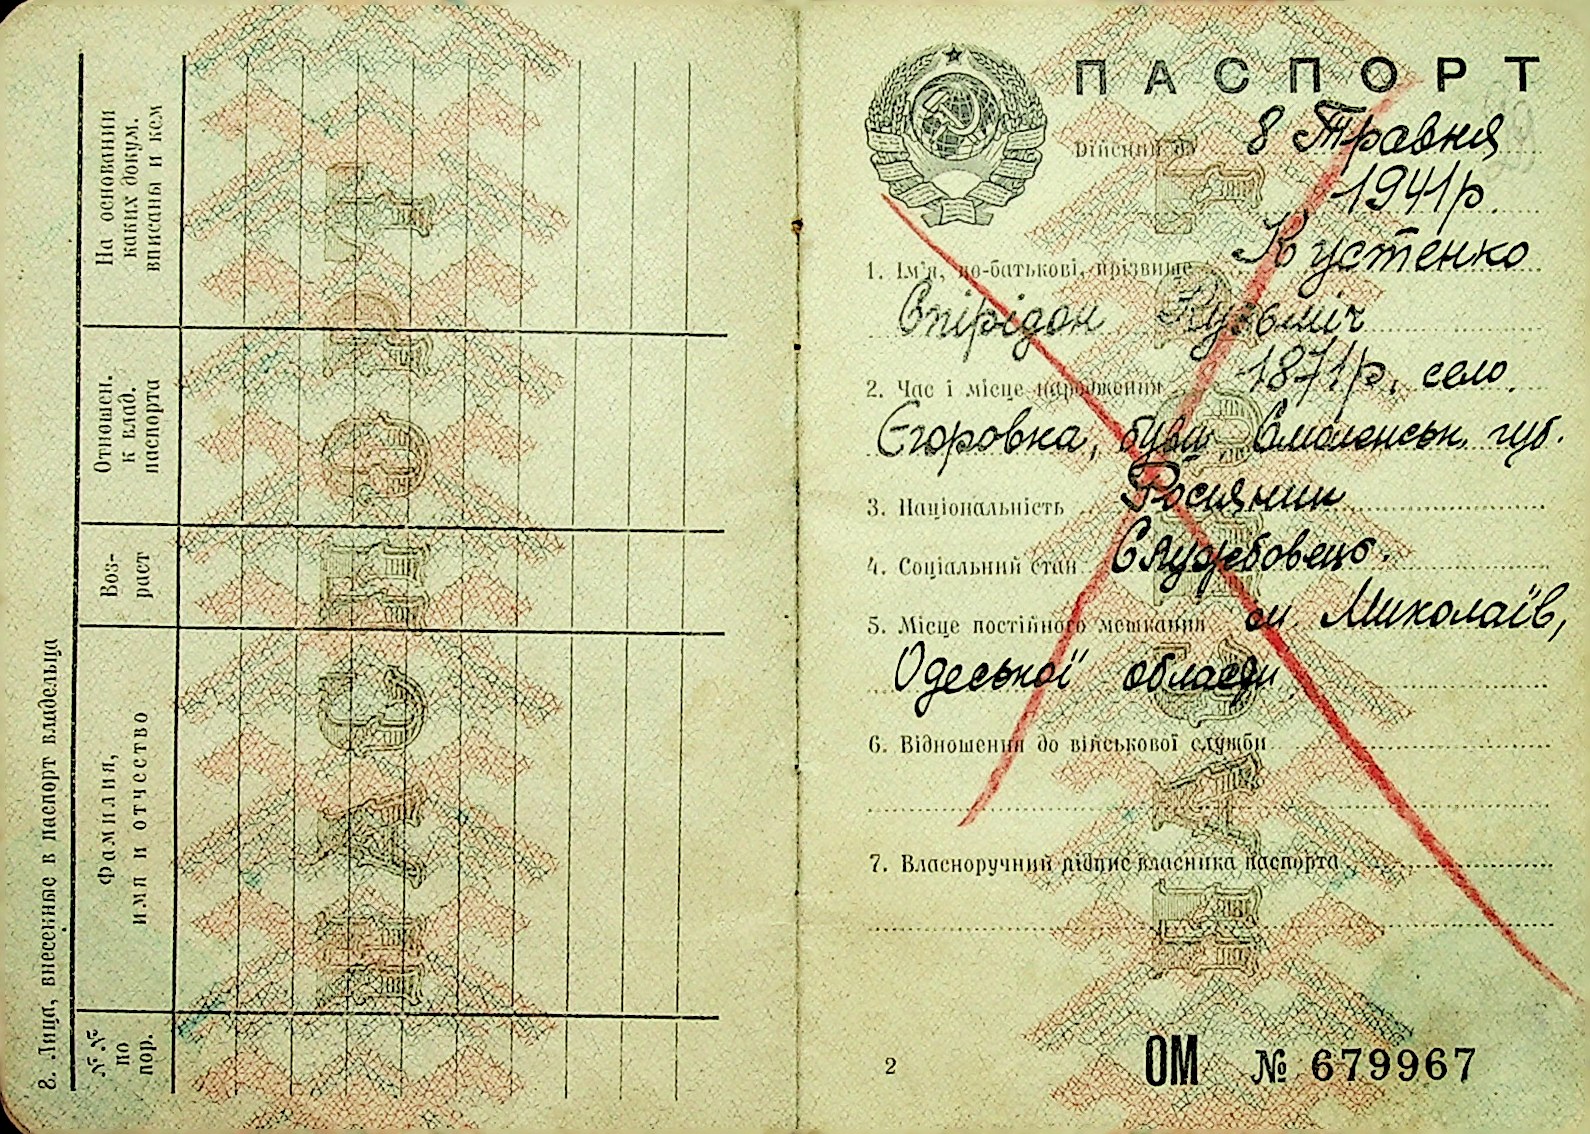 8. Лица, внесенные в паспорт владельца
№№ по пор.
Фамилия, имя и отчество
Воз-раст
Отношен. к влад. паспорта
На основании каких докум. вписаны и кем
ПАСПОРТ
Дійсний до 8 Травня
1941 р.
1. Ім'я, по-батькові, прізвище Кустенко
Спірідон Кузьміч
2. Час і місце народження 1871 р., село
Єгоровка, бувш Смоленськ. губ.
3. Національність Росіянин
4. Соціальний стан Службовець.
5. Місце постійного мешкання м. Миколаїв,
Одеської області
6. Відношення до військової служби
7. Власноручний підпис власника паспорта
2
ОМ № 679967